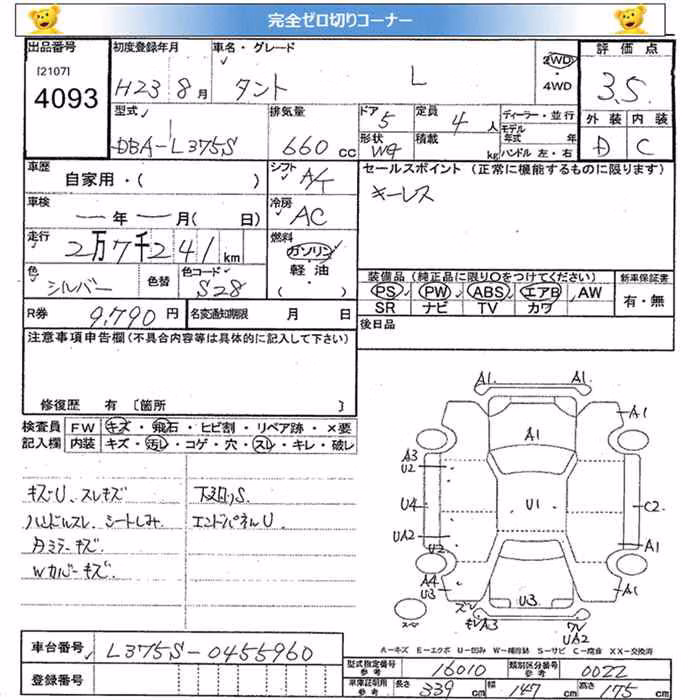 完全ゼロ切りコーナー
出品番号 初度登録年月 車名・グレード 2WD ・ 4WD 評価点
[2107] 4093 H23 8月 タント L 3.5
型式 排気量 ドア 5 定員 4人 ディーラー・並行 外装 内装
DBA-L375S 660cc 形状 WG 積載 kg モデル年式 年 ハンドル 左・右 D C
車歴 シフト A/T セールスポイント (正常に機能するものに限ります)
自家用・( ) キーレス
車検 冷房 AC
年 月( 日)
走行 2万7千241km 燃料 ガソリン 軽油
色 シルバー 色替 色コード S28 装備品 (純正品に限り○をつけてください) 新車保証書
PS PW ABS エアB AW 有・無
SR ナビ TV カワ
R券 9,790円 名変通知期限 月 日 後日品
注意事項申告欄(不具合内容等は具体的に記入して下さい)
修復歴 有 〔箇所 〕
検査員 FW キズ・飛石・ヒビ割・リペア跡・×要
記入欄 内装 キズ・汚し・コゲ・穴・スレ・キレ・破レ
キズU、スレキズ 下廻りS
ハンドルスレ シートしみ エンドパネルU
Wカバーキズ
A1 A1
A1
A1
A3
U2
U4 U1 C2
UA2
U2 A1
A4
U3 U3 A1
A3
UA2
A-キズ E-エクボ U-凹み W-補修跡 S-サビ C-腐食 XX-交換済
車台番号 L375S-0455960
登録番号 型式指定番号 参考 16010 類別区分番号 参考 0022
車庫証明用 参考 長さ 339cm 幅 147cm 高さ 175cm